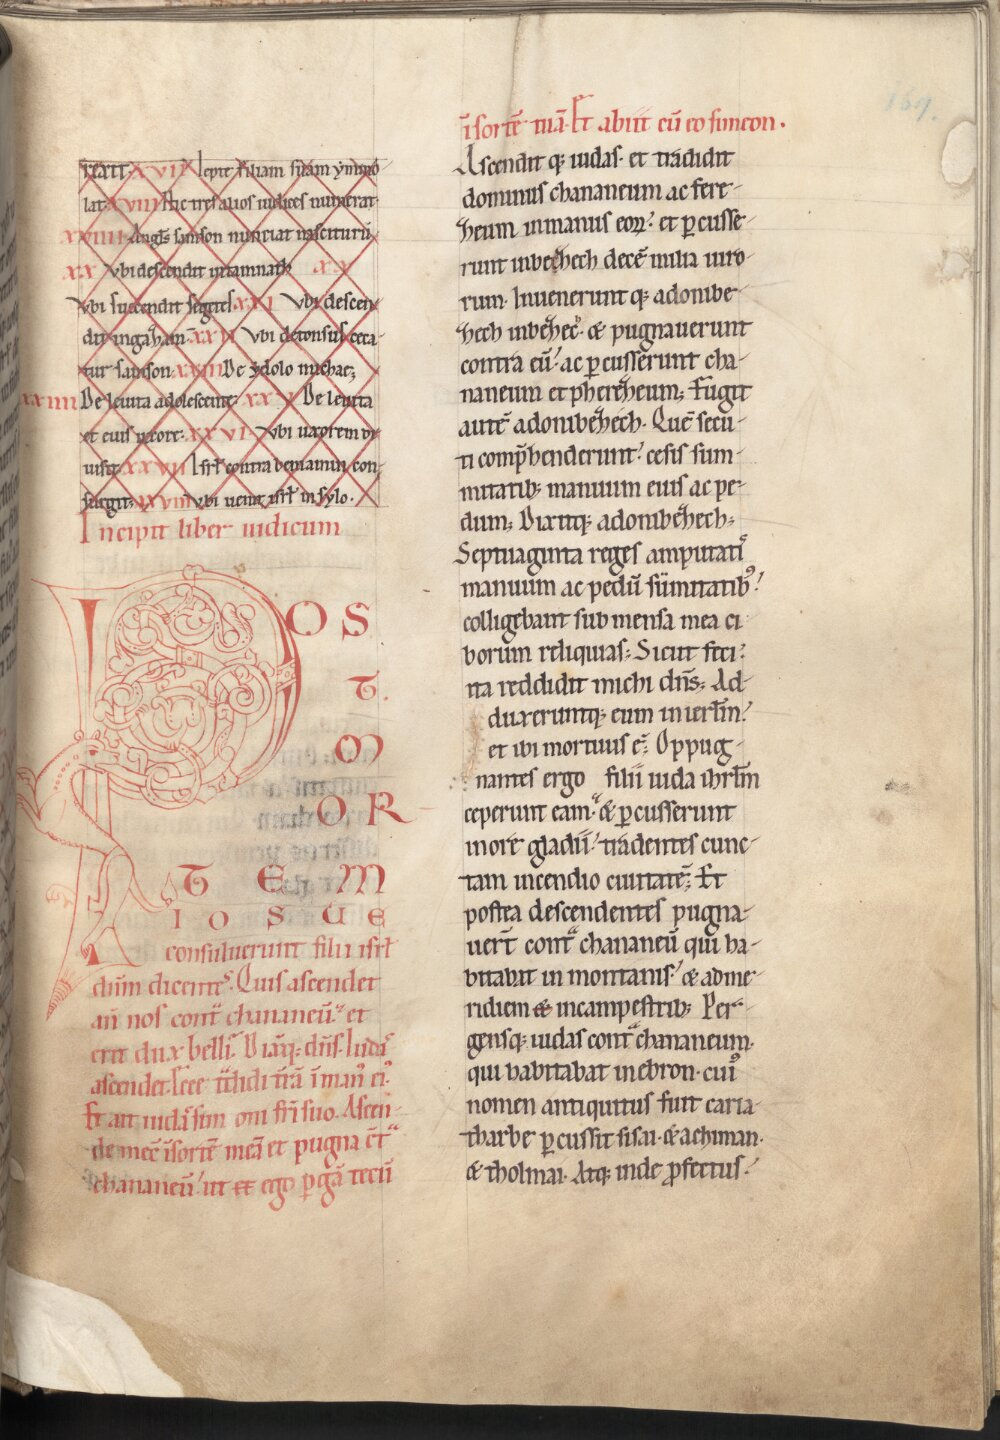 rexit. XVII Iepte filiam suam ymmo
lat. XVIII Hic tres alios iudices numerat.
XVIIII Angłs samson nunciat nasciturū
XX Vbi descendit in tamnath XX
Vbi succendit segetes. XXI Vbi descen
dit in gazham. XXII Vbi detonsus ceca
tur samson. XXIII De ydolo michae;
XXIIII De leuita adolescente. XXV De leuita
et eius uxore. XXVI Vbi uxorem di
uisit. XXVII Isrł contra beniamin con
surgit. XXVIII Vbi uenit isrł in sylo.
Incipit liber iudicum
POS
T
M
OR
TEM
IOSUE
consuluerunt filii isrł
dñm dicentes. Quis ascendet
añ nos contᵃ chananeū? et
erit dux belli. Dixitq; dñs. Iudas
ascendet. Ecce tᵃdidi trā ī man̄ ei᾿.
Et ait iudas simeoni fr̄i suo. Ascen
de mecū ī sortē meā et pugna ct̄ᵃ
chananeū! ut et ego pgā tecū
ī sortē tuā. Et abiit cū eo simeon.
Ascendit q; iudas. et tradidit
dominus chananeum ac fere
zheum in manus eoꝝ. et ꝑcusse
runt in bezhech decē milia uiro
rum. Inuenerunt q; adonibe
zhech in bezhec. & pugnauerunt
contra eū! ac ꝑcusserunt cha
naneum et pherezheum; Fugit
autē adonibezhech. Quē secu
ti comp̄henderunt! cesis sum
mitatib; manuum eius ac pe
dum; Dixitq; adonibezhech;
Septuaginta reges amputatis
manuum ac pedū sūmitatib᾿!
colligebant sub mensa mea ci
borum reliquias; Sicut feci!
ita reddidit michi dñs; Ad
duxeruntq; eum in ierłm!
et ibi mortuus ē; Oppug
nantes ergo filii iuda ihrłm
ceperunt eam. & ꝑcusserunt
in ore gladii! tradentes cunc
tam incendio ciuitatē; Et
postea descendentes pugna
uert̄ contᵃ chananeū qui ha
bitabat in montanis! & ad me
ridiem & in campestrib; Per
gensq; iudas contᵃ chananeum.
qui habitabat in ebron. cui᾿
nomen antiquitus fuit caria
tharbe ꝑcussit sisai. & achiman.
& tholmai. Atq; inde ꝓfectus!
169.